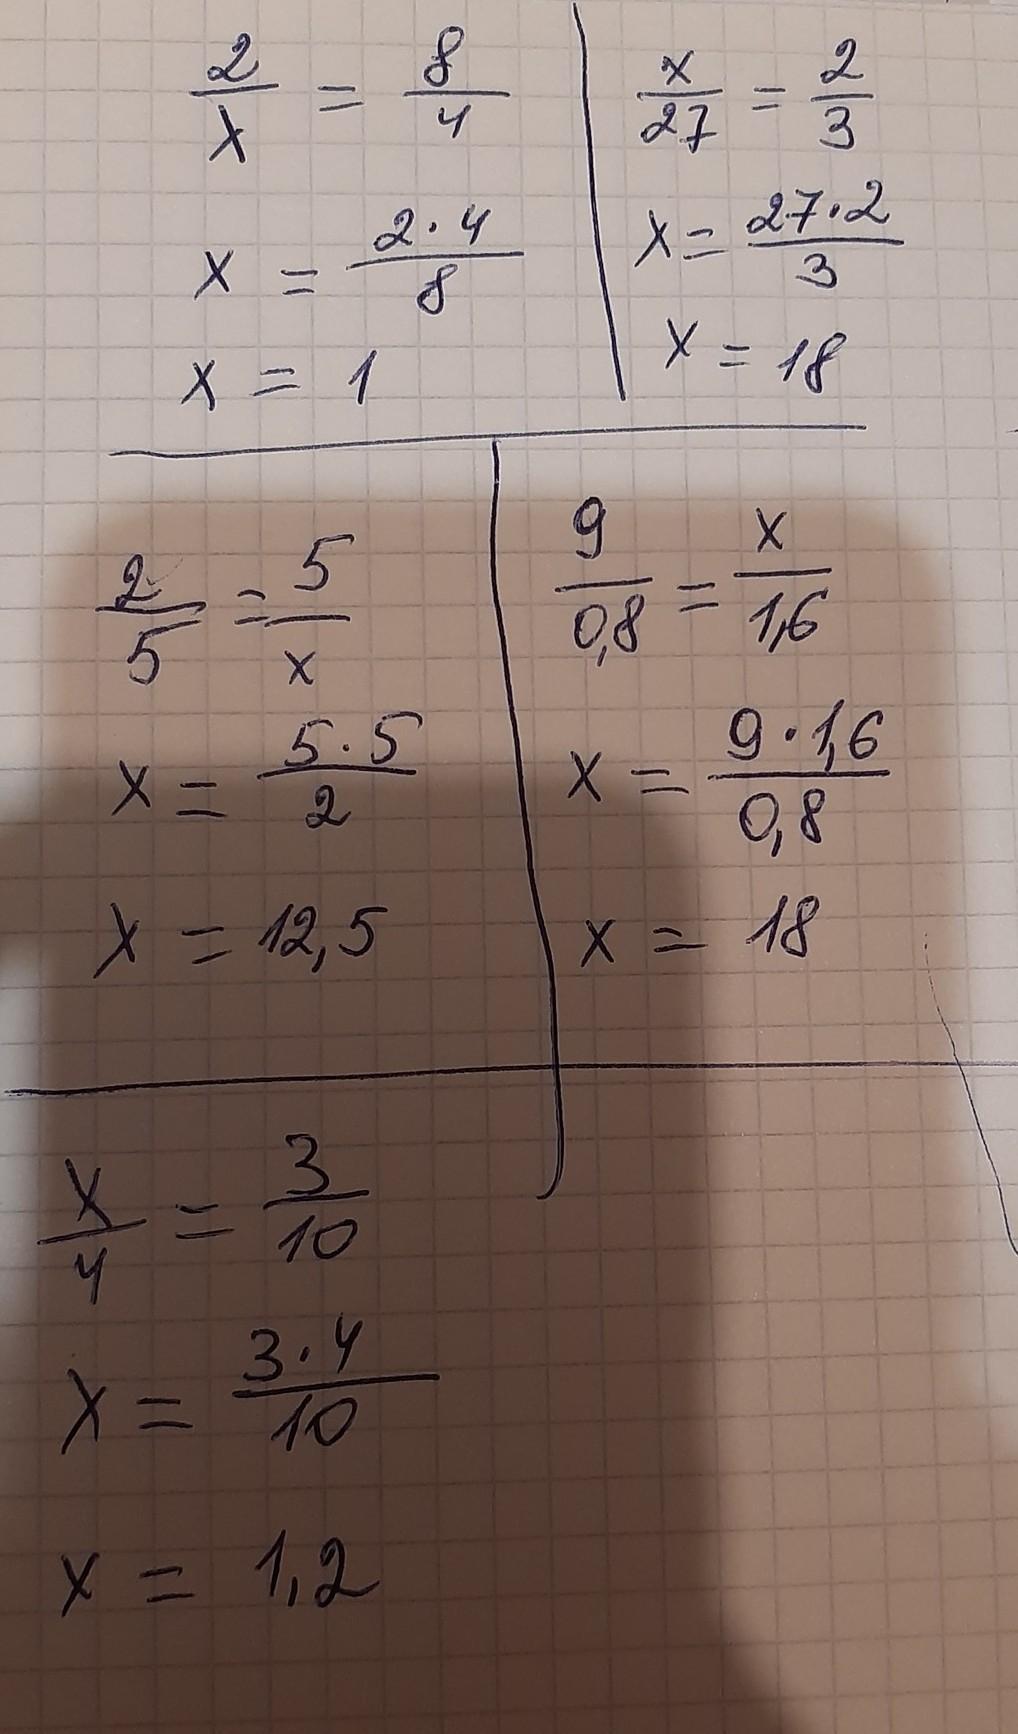 2/x = 8/4
x = 2·4/8
x = 1
x/27 = 2/3
x = 27·2/3
x = 18
2/5 = 5/x
x = 5·5/2
x = 12,5
9/0,8 = x/1,6
x = 9·1,6/0,8
x = 18
x/4 = 3/10
x = 3·4/10
x = 1,2